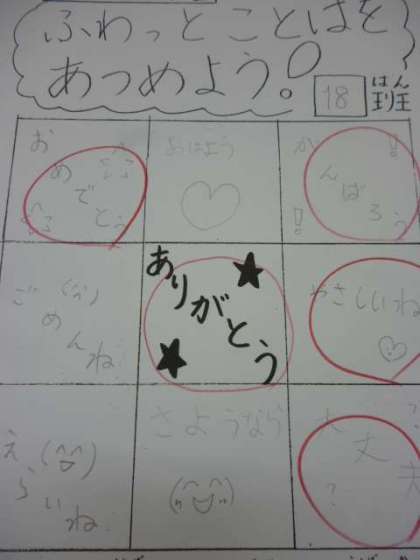 ふわっとことばを
あつめよう!
18
はん
班
おめでとう
おはよう
がんばろう!!
ごめんね
ありがとう
やさしいね
えらいね
さようなら
大丈夫??